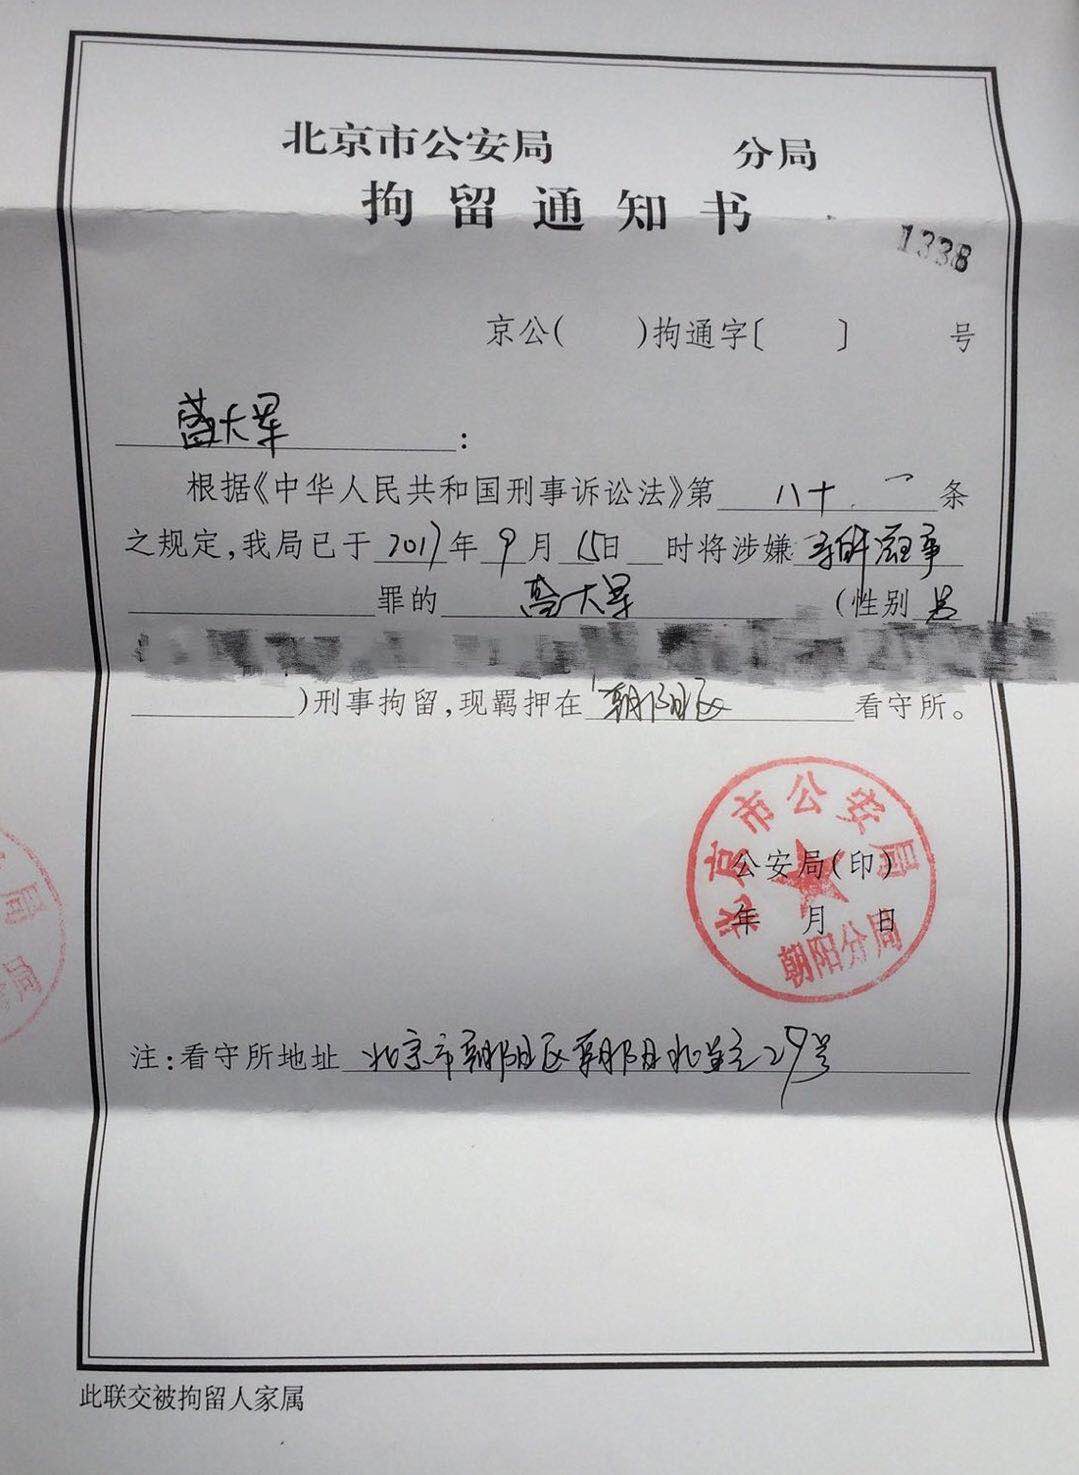 北京市公安局 分局
拘留通知书
1338
京公( )拘通字〔 〕 号
大军:
根据《中华人民共和国刑事诉讼法》第 八十 一 条
之规定,我局已于 2017 年 9 月 15日 时将涉嫌 寻衅滋事
罪的 大军 (性别 男
)刑事拘留,现羁押在 朝阳区 看守所。
北京市公安局
公安局(印)
年 月 日
朝阳分局
注:看守所地址 北京市朝阳区朝阳北路29号
此联交被拘留人家属
局